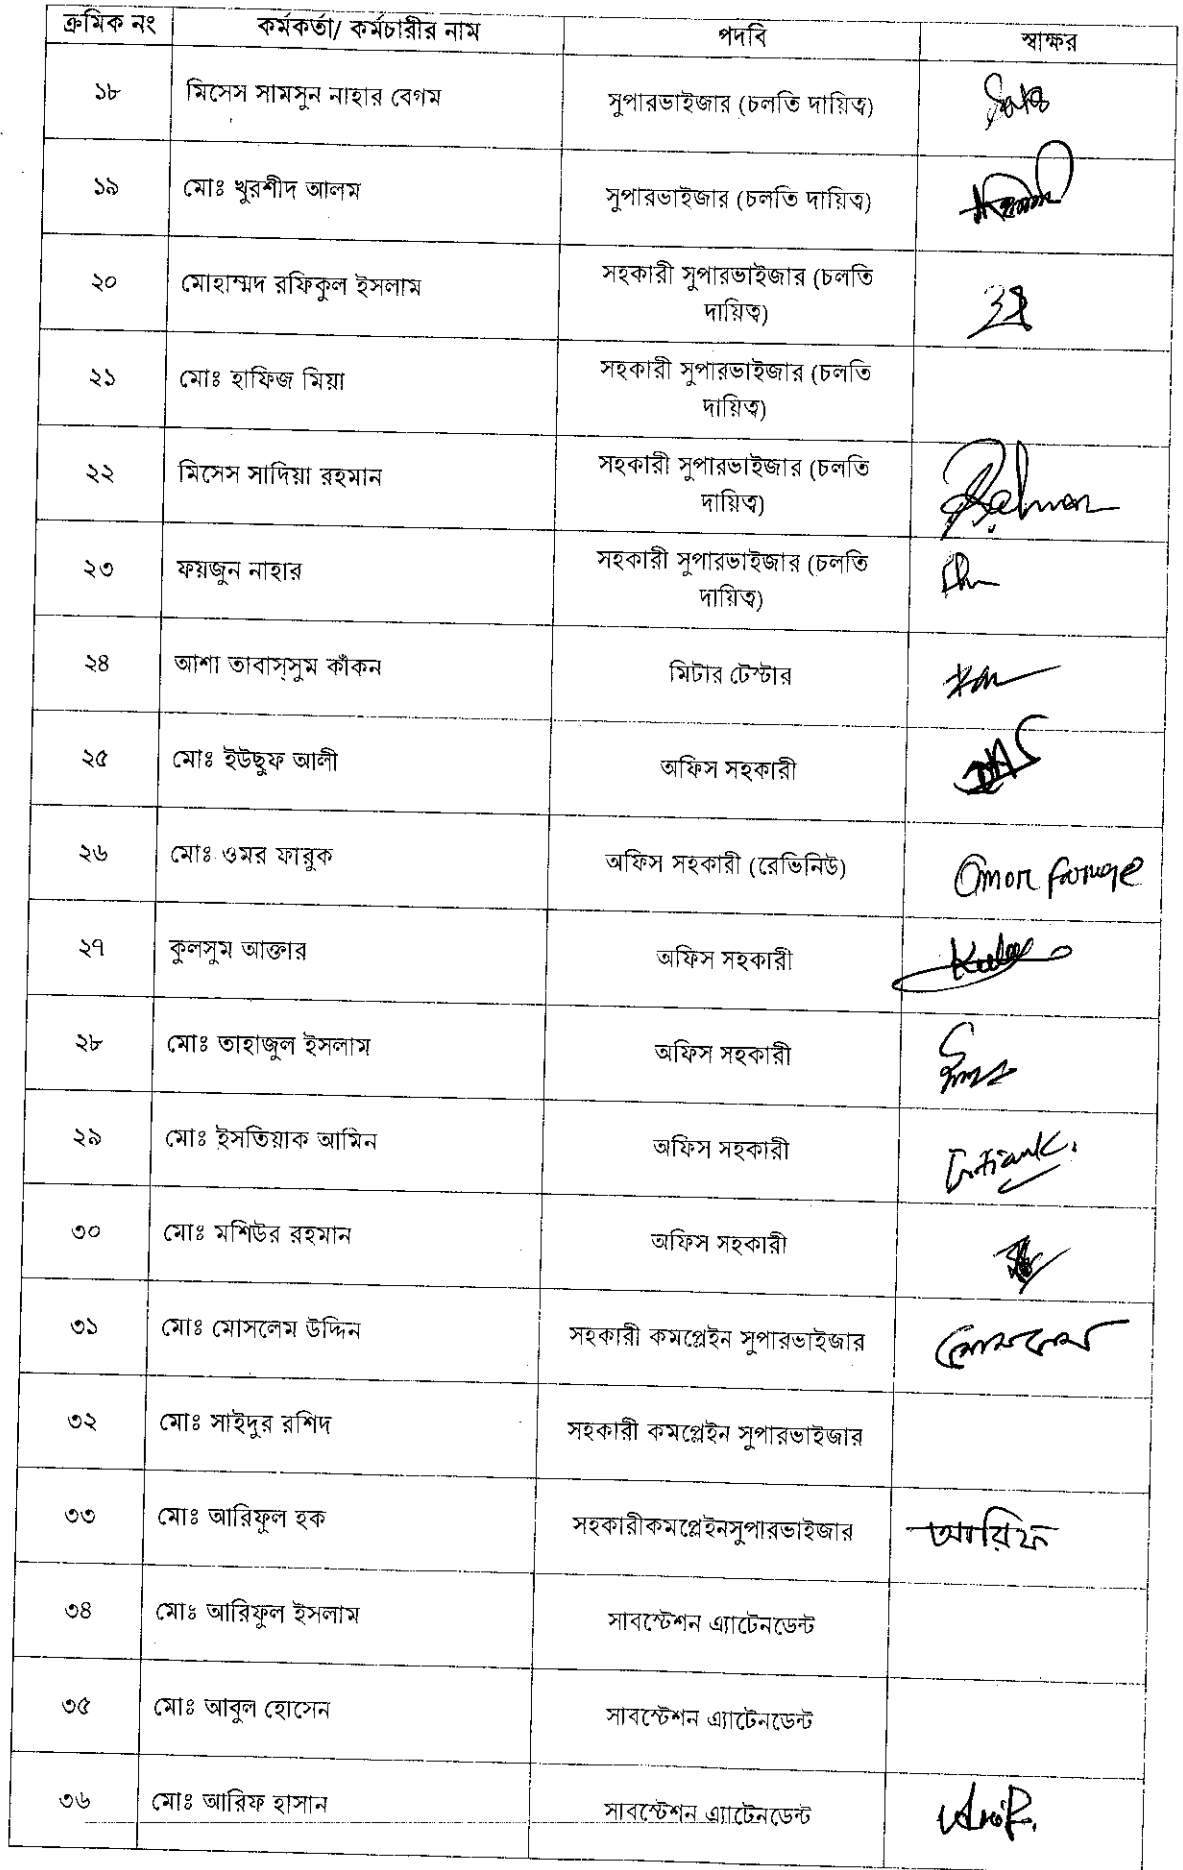 ক্রমিক নং কর্মকর্তা/ কর্মচারীর নাম পদবি স্বাক্ষর
১৮ মিসেস সামসুন নাহার বেগম সুপারভাইজার (চলতি দায়িত্ব)
১৯ মোঃ খুরশীদ আলম সুপারভাইজার (চলতি দায়িত্ব)
২০ মোহাম্মদ রফিকুল ইসলাম সহকারী সুপারভাইজার (চলতি
দায়িত্ব)
২১ মোঃ হাফিজ মিয়া সহকারী সুপারভাইজার (চলতি
দায়িত্ব)
২২ মিসেস সাদিয়া রহমান সহকারী সুপারভাইজার (চলতি
দায়িত্ব) Rahman
২৩ ফয়জুন নাহার সহকারী সুপারভাইজার (চলতি
দায়িত্ব)
২৪ আশা তাবাস্সুম কাঁকন মিটার টেস্টার
২৫ মোঃ ইউছুফ আলী অফিস সহকারী
২৬ মোঃ ওমর ফারুক অফিস সহকারী (রেভিনিউ) Omor Faruqe
২৭ কুলসুম আক্তার অফিস সহকারী
২৮ মোঃ তাহাজুল ইসলাম অফিস সহকারী
২৯ মোঃ ইসতিয়াক আমিন অফিস সহকারী
৩০ মোঃ মশিউর রহমান অফিস সহকারী
৩১ মোঃ মোসলেম উদ্দিন সহকারী কমপ্লেইন সুপারভাইজার
৩২ মোঃ সাইদুর রশিদ সহকারী কমপ্লেইন সুপারভাইজার
৩৩ মোঃ আরিফুল হক সহকারীকমপ্লেইনসুপারভাইজার আরিফ
৩৪ মোঃ আরিফুল ইসলাম সাবস্টেশন এ্যাটেনডেন্ট
৩৫ মোঃ আবুল হোসেন সাবস্টেশন এ্যাটেনডেন্ট
৩৬ মোঃ আরিফ হাসান সাবস্টেশন এ্যাটেনডেন্ট Arif.